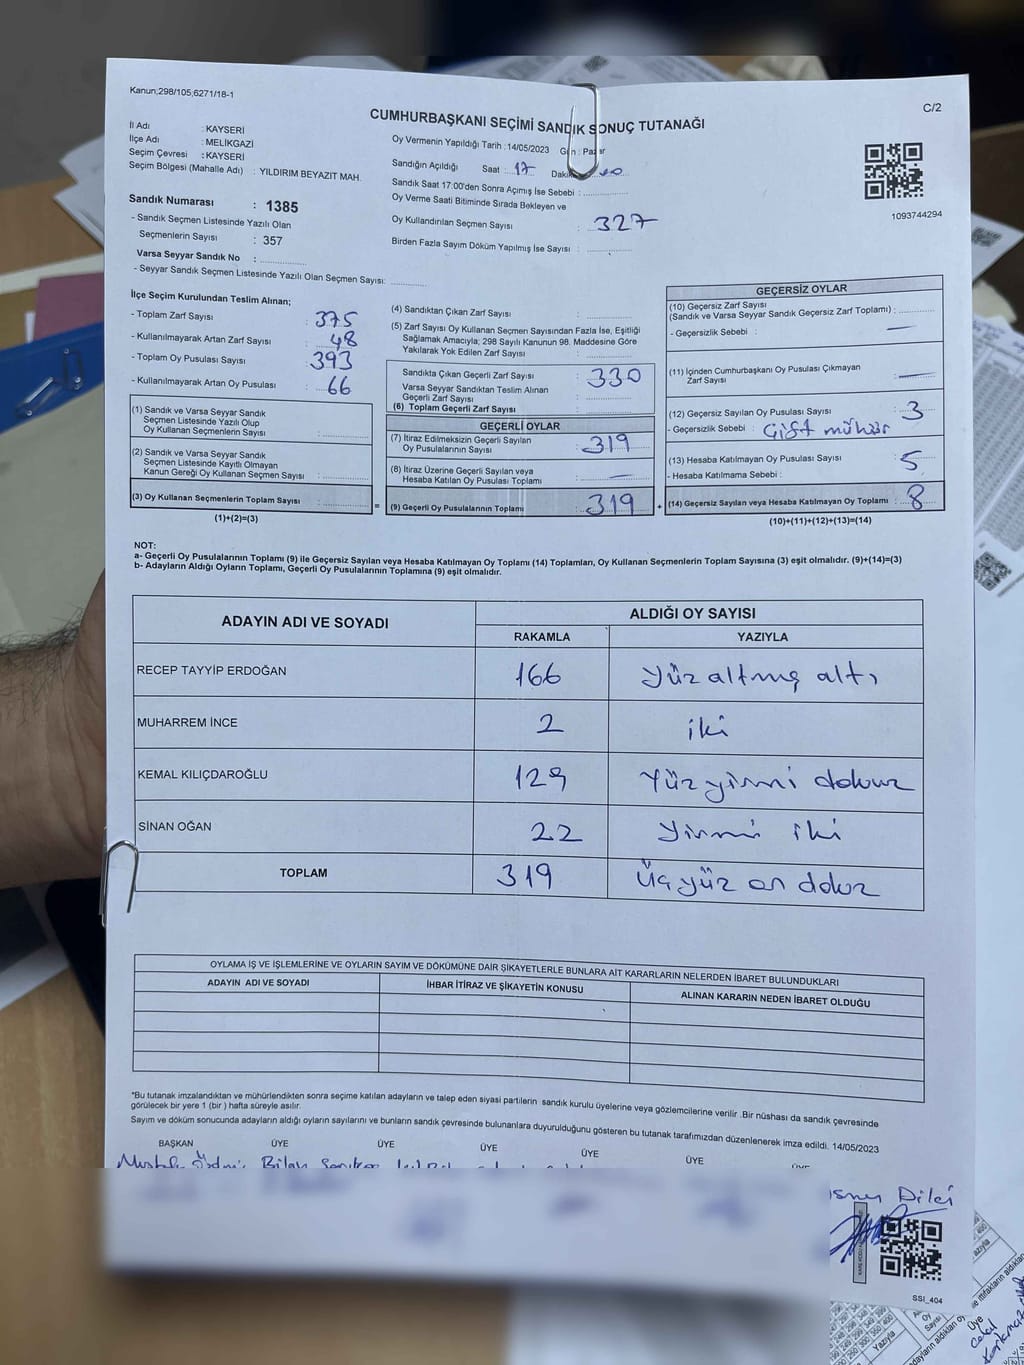 Kanun;298/105;6271/18-1
C/2
CUMHURBAŞKANI SEÇİMİ SANDIK SONUÇ TUTANAĞI
İl Adı : KAYSERİ
İlçe Adı : MELİKGAZİ
Seçim Çevresi : KAYSERİ
Seçim Bölgesi (Mahalle Adı) : YILDIRIM BEYAZIT MAH.
Sandık Numarası : 1385
- Sandık Seçmen Listesinde Yazılı Olan
Seçmenlerin Sayısı : 357
Varsa Seyyar Sandık No : ..............
- Seyyar Sandık Seçmen Listesinde Yazılı Olan Seçmen Sayısı: ............
Oy Vermenin Yapıldığı Tarih : 14/05/2023 Gün : Pazar
Sandığın Açıldığı Saat : 17
Sandık Saat 17:00'den Sonra Açımış İse Sebebi : ..............
Oy Verme Saati Bitiminde Sırada Bekleyen ve
Oy Kullandırılan Seçmen Sayısı : 327
Birden Fazla Sayım Döküm Yapılmış İse Sayısı : ..............
1093744294
İlçe Seçim Kurulundan Teslim Alınan;
- Toplam Zarf Sayısı : 375
- Kullanılmayarak Artan Zarf Sayısı : 48
- Toplam Oy Pusulası Sayısı : 393
- Kullanılmayarak Artan Oy Pusulası : 66
(1) Sandık ve Varsa Seyyar Sandık
Seçmen Listesinde Yazılı Olup
Oy Kullanan Seçmenlerin Sayısı : ..............
(2) Sandık ve Varsa Seyyar Sandık
Seçmen Listesinde Kayıtlı Olmayan
Kanun Gereği Oy Kullanan Seçmen Sayısı : ..............
(3) Oy Kullanan Seçmenlerin Toplam Sayısı : ..............
(1)+(2)=(3)
(4) Sandıktan Çıkan Zarf Sayısı : ..............
(5) Zarf Sayısı Oy Kullanan Seçmen Sayısından Fazla İse, Eşitliği
Sağlamak Amacıyla; 298 Sayılı Kanunun 98. Maddesine Göre
Yakılarak Yok Edilen Zarf Sayısı : ..............
Sandıkta Çıkan Geçerli Zarf Sayısı : 330
Varsa Seyyar Sandıktan Teslim Alınan
Geçerli Zarf Sayısı : ..............
(6) Toplam Geçerli Zarf Sayısı : ..............
GEÇERLİ OYLAR
(7) İtiraz Edilmeksizin Geçerli Sayılan
Oy Pusulalarının Sayısı : 319
(8) İtiraz Üzerine Geçerli Sayılan veya
Hesaba Katılan Oy Pusulası Toplamı : —
= (9) Geçerli Oy Pusulalarının Toplamı : 319
GEÇERSİZ OYLAR
(10) Geçersiz Zarf Sayısı
(Sandık ve Varsa Seyyar Sandık Geçersiz Zarf Toplamı) : ............
- Geçersizlik Sebebi : —
(11) İçinden Cumhurbaşkanı Oy Pusulası Çıkmayan
Zarf Sayısı : —
(12) Geçersiz Sayılan Oy Pusulası Sayısı : 3
- Geçersizlik Sebebi : Çift mühür
(13) Hesaba Katılmayan Oy Pusulası Sayısı : 5
- Hesaba Katılmama Sebebi :
+ (14) Geçersiz Sayılan veya Hesaba Katılmayan Oy Toplamı : 8
(10)+(11)+(12)+(13)=(14)
NOT:
a- Geçerli Oy Pusulalarının Toplamı (9) ile Geçersiz Sayılan veya Hesaba Katılmayan Oy Toplamı (14) Toplamları, Oy Kullanan Seçmenlerin Toplam Sayısına (3) eşit olmalıdır. (9)+(14)=(3)
b- Adayların Aldığı Oyların Toplamı, Geçerli Oy Pusulalarının Toplamına (9) eşit olmalıdır.
ADAYIN ADI VE SOYADI ALDIĞI OY SAYISI
RAKAMLA YAZIYLA
RECEP TAYYİP ERDOĞAN 166 Yüz altmış altı
MUHARREM İNCE 2 iki
KEMAL KILIÇDAROĞLU 129 Yüz yirmi dokuz
SİNAN OĞAN 22 Yirmi iki
TOPLAM 319 Üç yüz on dokuz
OYLAMA İŞ VE İŞLEMLERİNE VE OYLARIN SAYIM VE DÖKÜMÜNE DAİR ŞİKAYETLERLE BUNLARA AİT KARARLARIN NELERDEN İBARET BULUNDUKLARI
ADAYIN ADI VE SOYADI İHBAR İTİRAZ VE ŞİKAYETİN KONUSU ALINAN KARARIN NEDEN İBARET OLDUĞU
*Bu tutanak imzalandıktan ve mühürlendikten sonra seçime katılan adayların ve talep eden siyasi partilerin sandık kurulu üyelerine veya gözlemcilerine verilir .Bir nüshası da sandık çevresinde
görülecek bir yere 1 (bir ) hafta süreyle asılır.
Sayım ve döküm sonucunda adayların aldığı oyların sayılarını ve bunların sandık çevresinde bulunanlara duyurulduğunu gösteren bu tutanak tarafımızdan düzenlenerek imza edildi. 14/05/2023
BAŞKAN ÜYE ÜYE ÜYE ÜYE ÜYE
Dilci
SSI_404